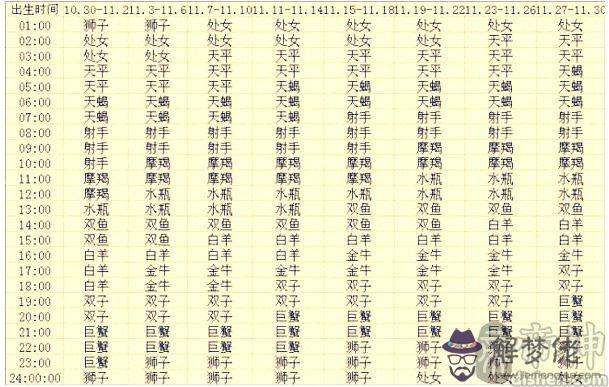 出生时间 10.30-11.2 11.3-11.6 11.7-11.10 11.11-11.14 11.15-11.18 11.19-11.22 11.23-11.26 11.27-11.30
01:00 狮子 狮子 处女 处女 处女 处女 处女 处女
02:00 处女 处女 处女 处女 处女 处女 天平 天平
03:00 处女 处女 天平 天平 天平 天平 天平 天平
04:00 天平 天平 天平 天平 天平 天平 天平 天蝎
05:00 天平 天平 天平 天蝎 天蝎 天蝎 天蝎 天蝎
06:00 天蝎 天蝎 天蝎 天蝎 天蝎 天蝎 天蝎 天蝎
07:00 天蝎 天蝎 天蝎 天蝎 射手 射手 射手 射手
08:00 射手 射手 射手 射手 射手 射手 射手 射手
09:00 射手 射手 射手 射手 射手 摩羯 摩羯 摩羯
10:00 射手 摩羯 摩羯 摩羯 摩羯 摩羯 摩羯 摩羯
11:00 摩羯 摩羯 摩羯 摩羯 摩羯 水瓶 水瓶 水瓶
12:00 摩羯 水瓶 水瓶 水瓶 水瓶 水瓶 水瓶 水瓶
13:00 水瓶 水瓶 水瓶 水瓶 双鱼 双鱼 双鱼 双鱼
14:00 双鱼 双鱼 双鱼 双鱼 双鱼 双鱼 白羊 白羊
15:00 双鱼 双鱼 白羊 白羊 白羊 白羊 白羊 白羊
16:00 白羊 白羊 白羊 白羊 金牛 金牛 金牛 金牛
17:00 白羊 金牛 金牛 金牛 金牛 金牛 金牛 双子
18:00 白羊 金牛 金牛 双子 双子 双子 双子 双子
19:00 双子 双子 双子 双子 双子 双子 双子 巨蟹
20:00 双子 双子 双子 巨蟹 巨蟹 巨蟹 巨蟹 巨蟹
21:00 巨蟹 巨蟹 巨蟹 巨蟹 巨蟹 巨蟹
22:00 巨蟹 巨蟹 巨蟹 巨蟹 狮子 狮子
23:00 巨蟹 狮子 狮子 狮子 狮子 狮子
24:00:00 狮子 狮子 狮子 狮子 狮子 处女 处女
解梦佬
www.jiemenglao.com